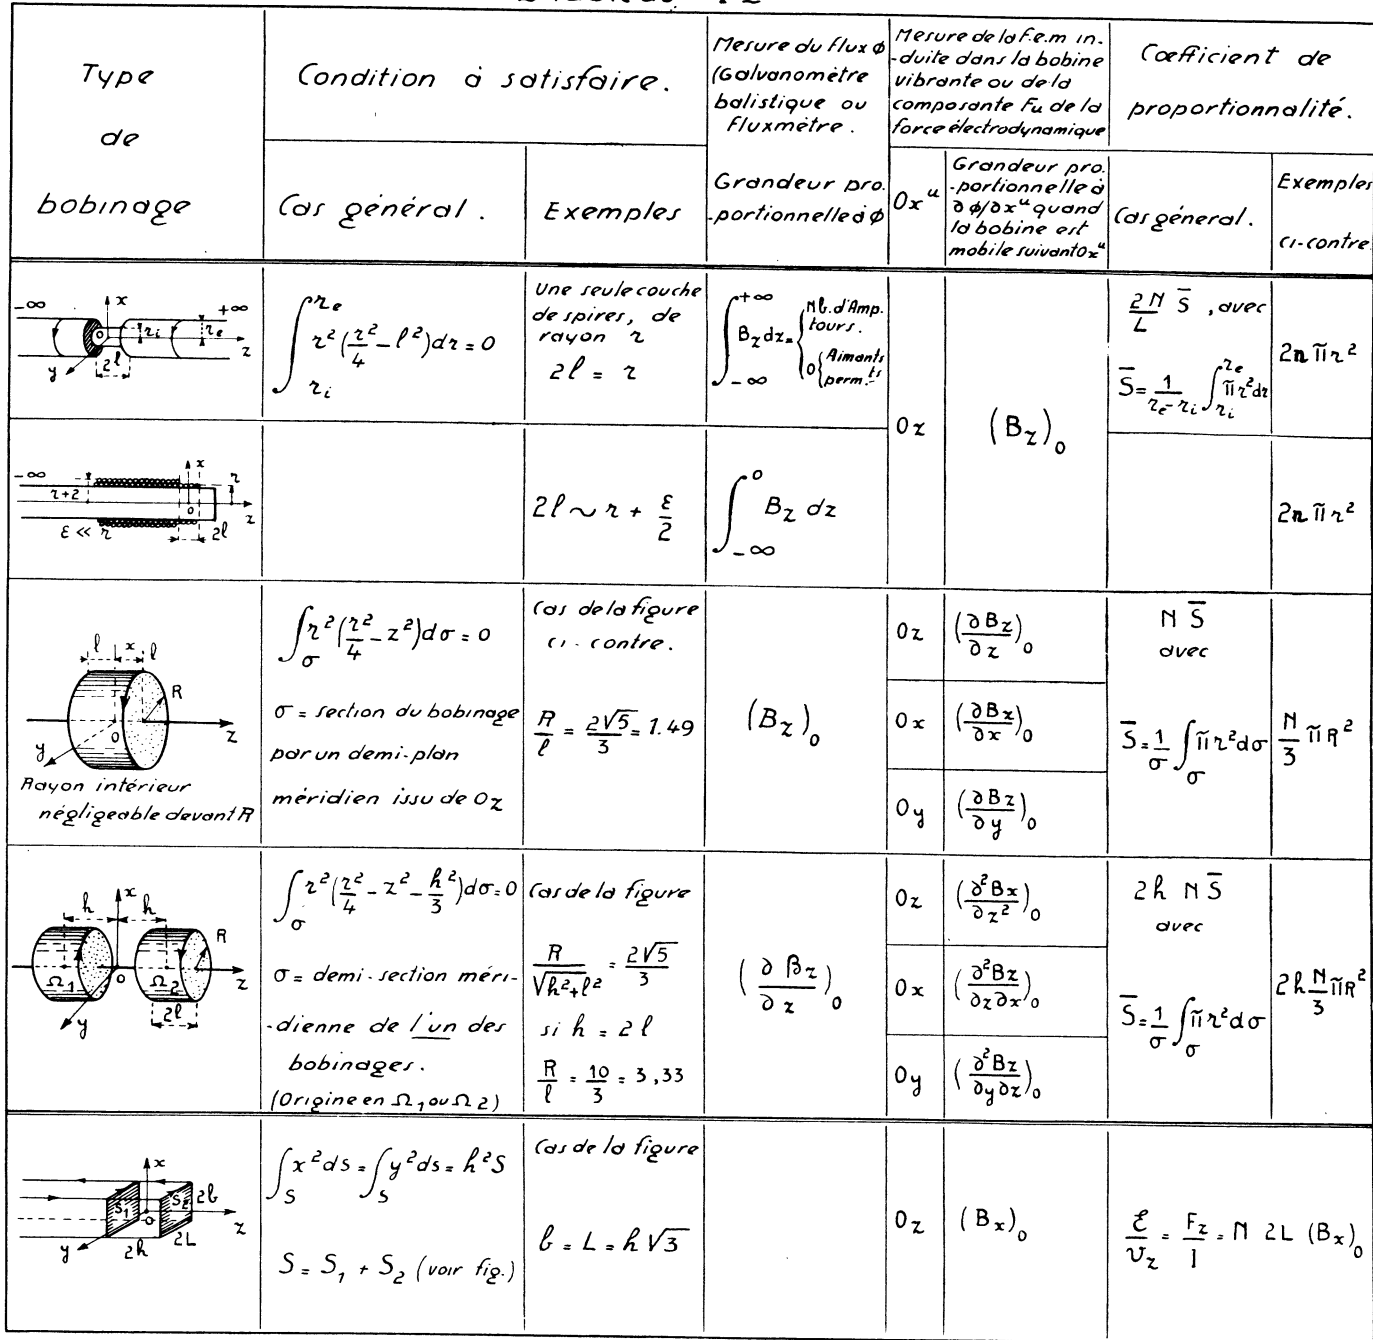 Type
de
bobinage
Condition à satisfaire.
Cas général.
Exemples
Mesure du flux ϕ
(Galvanomètre
balistique ou
fluxmètre.
Grandeur pro.
-portionnelle à ϕ
Mesure de la f.e.m in-
-duite dans la bobine
vibrante ou de la
composante Fu de la
force électrodynamique
Ox^u
Grandeur pro.
-portionnelle à
∂ϕ/∂x^u quand
la bobine est
mobile suivant Ox^u
Cœfficient de
proportionnalité.
Cas géneral.
Exemples
ci-contre.
-∞ x +∞
r_i r_e
0 z
y 2l
∫_{r_i}^{r_e} r²(r²/4 - l²)dr = 0
Une seule couche
de spires, de
rayon r
2l = r
∫_{-∞}^{+∞} B_z dz = { Nb. d'Amp. tours. 0 { Aimants perm.ts
Oz
(B_z)_0
2N/L S̄, avec
S̄ = 1/(r_e - r_i) ∫_{r_i}^{r_e} πr²dr
2nπr²
-∞ x r
r+2 0 z
ε ≪ r 2l
2l ∼ r + ε/2
∫_{-∞}^{0} B_z dz
2nπr²
l x l
R
y 0 z
Rayon intérieur
négligeable devant R
∫_σ r²(r²/4 - z²)dσ = 0
σ = section du bobinage
par un demi-plan
méridien issu de Oz
Cas de la figure
ci-contre.
R/l = 2√5/3 = 1.49
(B_z)_0
Oz (∂B_z/∂z)_0
Ox (∂B_z/∂x)_0
Oy (∂B_z/∂y)_0
N S̄
avec
S̄ = 1/σ ∫_σ πr²dσ
N/3 πR²
h x h
R
Ω_1 0 Ω_2 z
y 2l
∫_σ r²(r²/4 - z² - h²/3)dσ = 0
σ = demi-section méri-
-dienne de l'un des
bobinages.
(Origine en Ω_1 ou Ω_2)
Cas de la figure
R/√(h²+l²) = 2√5/3
si h = 2l
R/l = 10/3 = 3,33
(∂B_z/∂z)_0
Oz (∂²B_x/∂z²)_0
Ox (∂²B_z/∂z∂x)_0
Oy (∂²B_z/∂y∂z)_0
2h N S̄
avec
S̄ = 1/σ ∫_σ πr²dσ
2h N/3 πR²
x
S_1 0 S_2 2b
z
y 2h 2L
∫_S x²ds = ∫_S y²ds = h²S
S = S_1 + S_2 (voir fig.)
Cas de la figure
b = L = h√3
Oz
(B_x)_0
ℰ/v_z = F_z/I = N 2L (B_x)_0